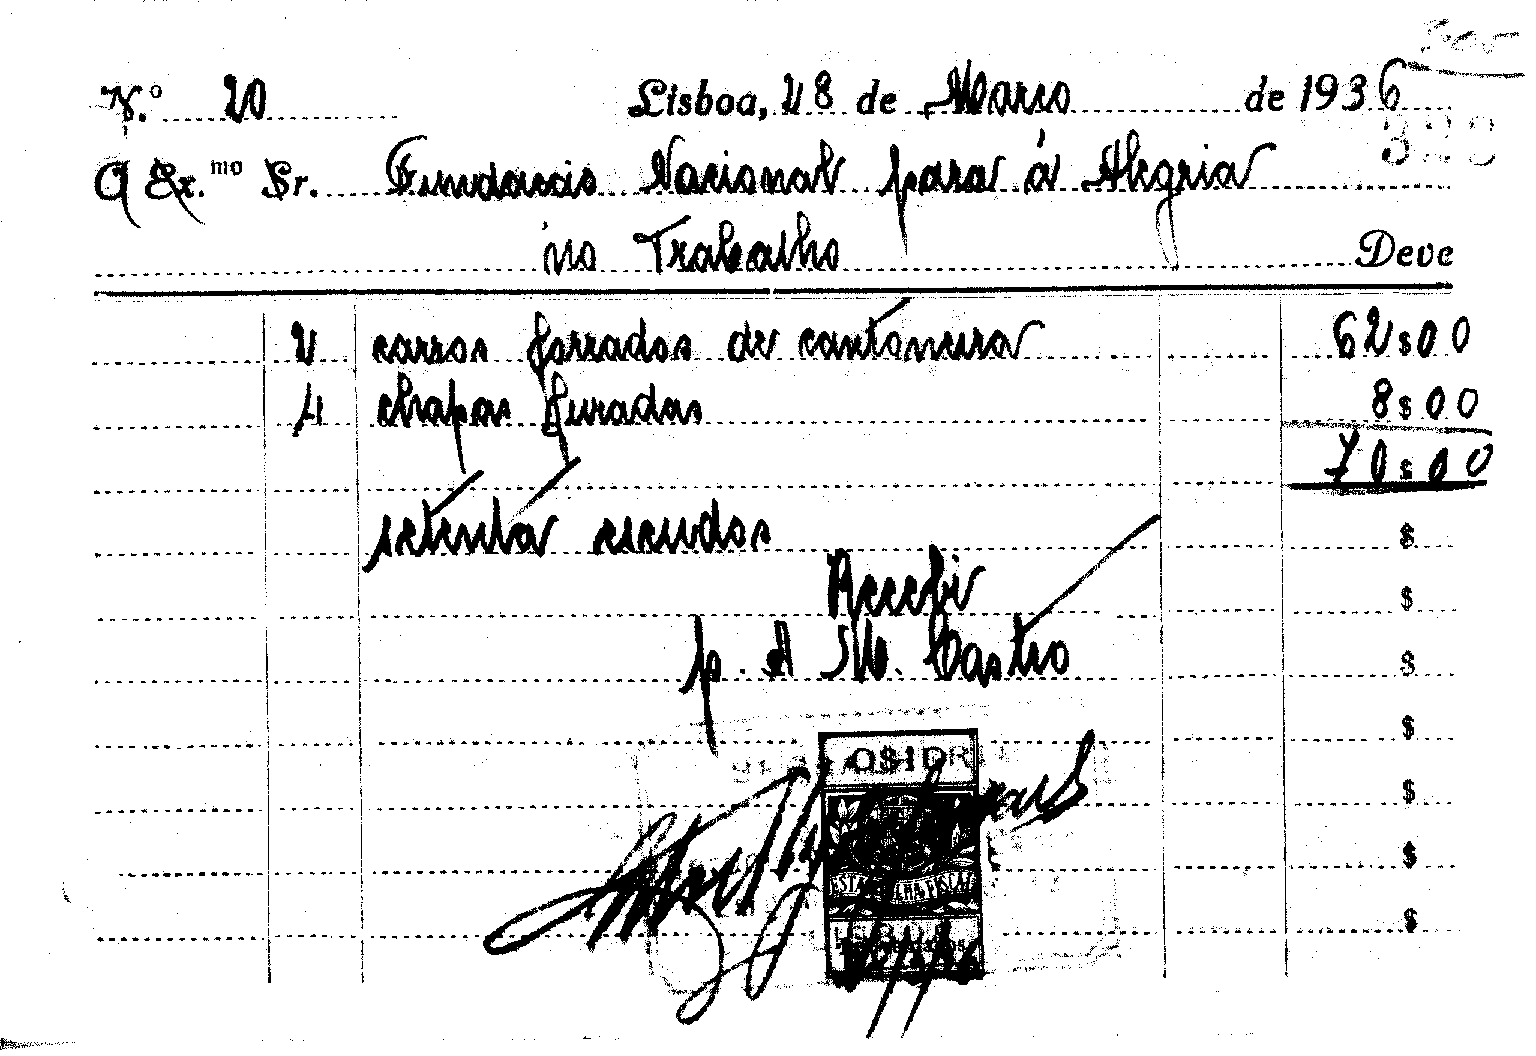 N.º 20 Lisboa, 28 de Março de 1936
O Ex.mo Sr. Fundacais Nacional para á Alegria
no Trabalho Deve
2 carros forrados de cantoneira 62$00
4 chapas furadas 8$00
70$00
setenta escudos $
Recebi $
p. A M. Castro $
$
OS1D
$
$
ESTAMPILHA FISCAL
$